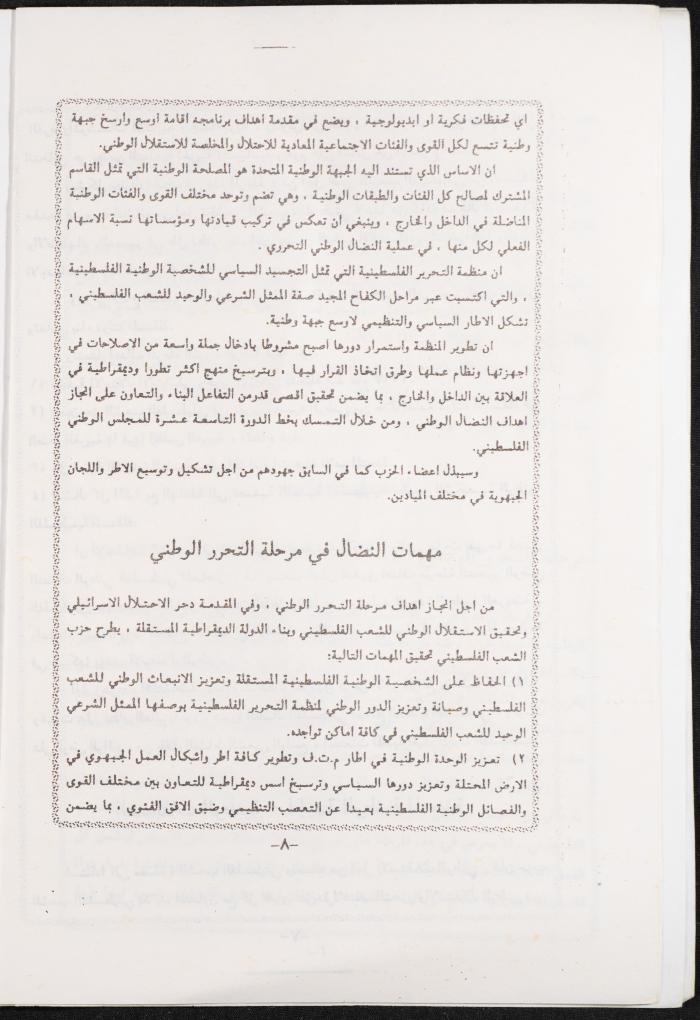 اي تحفظات فكرية او ايديولوجية ، ويضع في مقدمة اهداف برنامجه اقامة اوسع وارسخ جبهة
وطنية تتسع لكل القوى والفئات الاجتماعية المعادية للاحتلال والمخلصة للاستقلال الوطني.
ان الاساس الذي تستند اليه الجبهة الوطنية المتحدة هو المصلحة الوطنية التي تمثل القاسم
المشترك لمصالح كل الفئات والطبقات الوطنية ، وهي تضم وتوحد مختلف القوى والفئات الوطنية
المناضلة في الداخل والخارج ، وينبغي ان تعكس في تركيب قيادتها ومؤسساتها نسبة الاسهام
الفعلي لكل منها ، في عملية النضال الوطني التحرري .
ان منظمة التحرير الفلسطينية التي تمثل التجسيد السياسي للشخصية الوطنية الفلسطينية
، والتي اكتسبت عبر مراحل الكفاح المجيد صفة الممثل الشرعي والوحيد للشعب الفلسطيني ،
تشكل الاطار السياسي والتنظيمي لاوسع جبهة وطنية.
ان تطوير المنظمة واستمرار دورها اصبح مشروطا بادخال جملة واسعة من الاصلاحات في
اجهزتها ونظام عملها وطرق اتخاذ القرار فيها ، وبترسيخ منهج اكثر تطورا وديمقراطية في
العلاقة بين الداخل والخارج ، بما يضمن تحقيق اقصى قدرمن التفاعل البناء والتعاون على انجاز
اهداف النضال الوطني ، ومن خلال التمسك بخط الدورة التاسعة عشرة للمجلس الوطني
الفلسطيني.
وسيبذل اعضاء الحزب كما في السابق جهودهم من اجل تشكيل وتوسيع الاطر واللجان
الجبهوية في مختلف الميادين.
مهمات النضال في مرحلة التحرر الوطني
من اجل انجاز اهداف مرحلة التحرر الوطني ، وفي المقدمة دحر الاحتلال الاسرائيلي
وتحقيق الاستقلال الوطني للشعب الفلسطيني وبناء الدولة الديمقراطية المستقلة ، يطرح حزب
الشعب الفلسطيني تحقيق المهمات التالية:
١) الحفاظ على الشخصية الوطنية الفلسطينية المستقلة وتعزيز الانبعاث الوطني للشعب
الفلسطيني وصيانة وتعزيز الدور الوطني لمنظمة التحرير الفلسطينية بوصفها الممثل الشرعي
الوحيد للشعب الفلسطيني في كافة اماكن تواجده.
٢) تعزيز الوحدة الوطنية في اطار م.ت.ف وتطوير كافة اطر واشكال العمل الجبهوي في
الارض المحتلة وتعزيز دورها السياسي وترسيخ اسس ديمقراطية للتعاون بين مختلف القوى
والفصائل الوطنية الفلسطينية بعيدا عن التعصب التنظيمي وضيق الافق الفئوي ، بما يضمن
-٨-